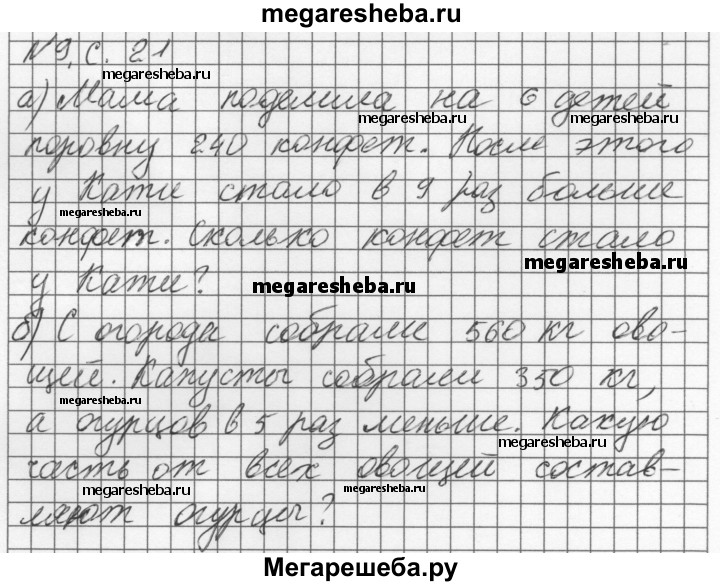 megaresheba.ru
№9, с. 21
megaresheba.ru
а) Мама поделила на 6 детей
megaresheba.ru megaresheba.ru
поровну 240 конфет. После этого
у Кати стало в 9 раз больше
megaresheba.ru
конфет. Сколько конфет стало
megaresheba.ru
у Кати?
megaresheba.ru
б) С огорода собрали 560 кг ово-
щей. Капусты собрали 350 кг,
megaresheba.ru
а огурцов в 5 раз меньше. Какую
megaresheba.ru
часть от всех овощей состав-
megaresheba.ru megaresheba.ru
ляют огурцы?
Мегарешеба.ру